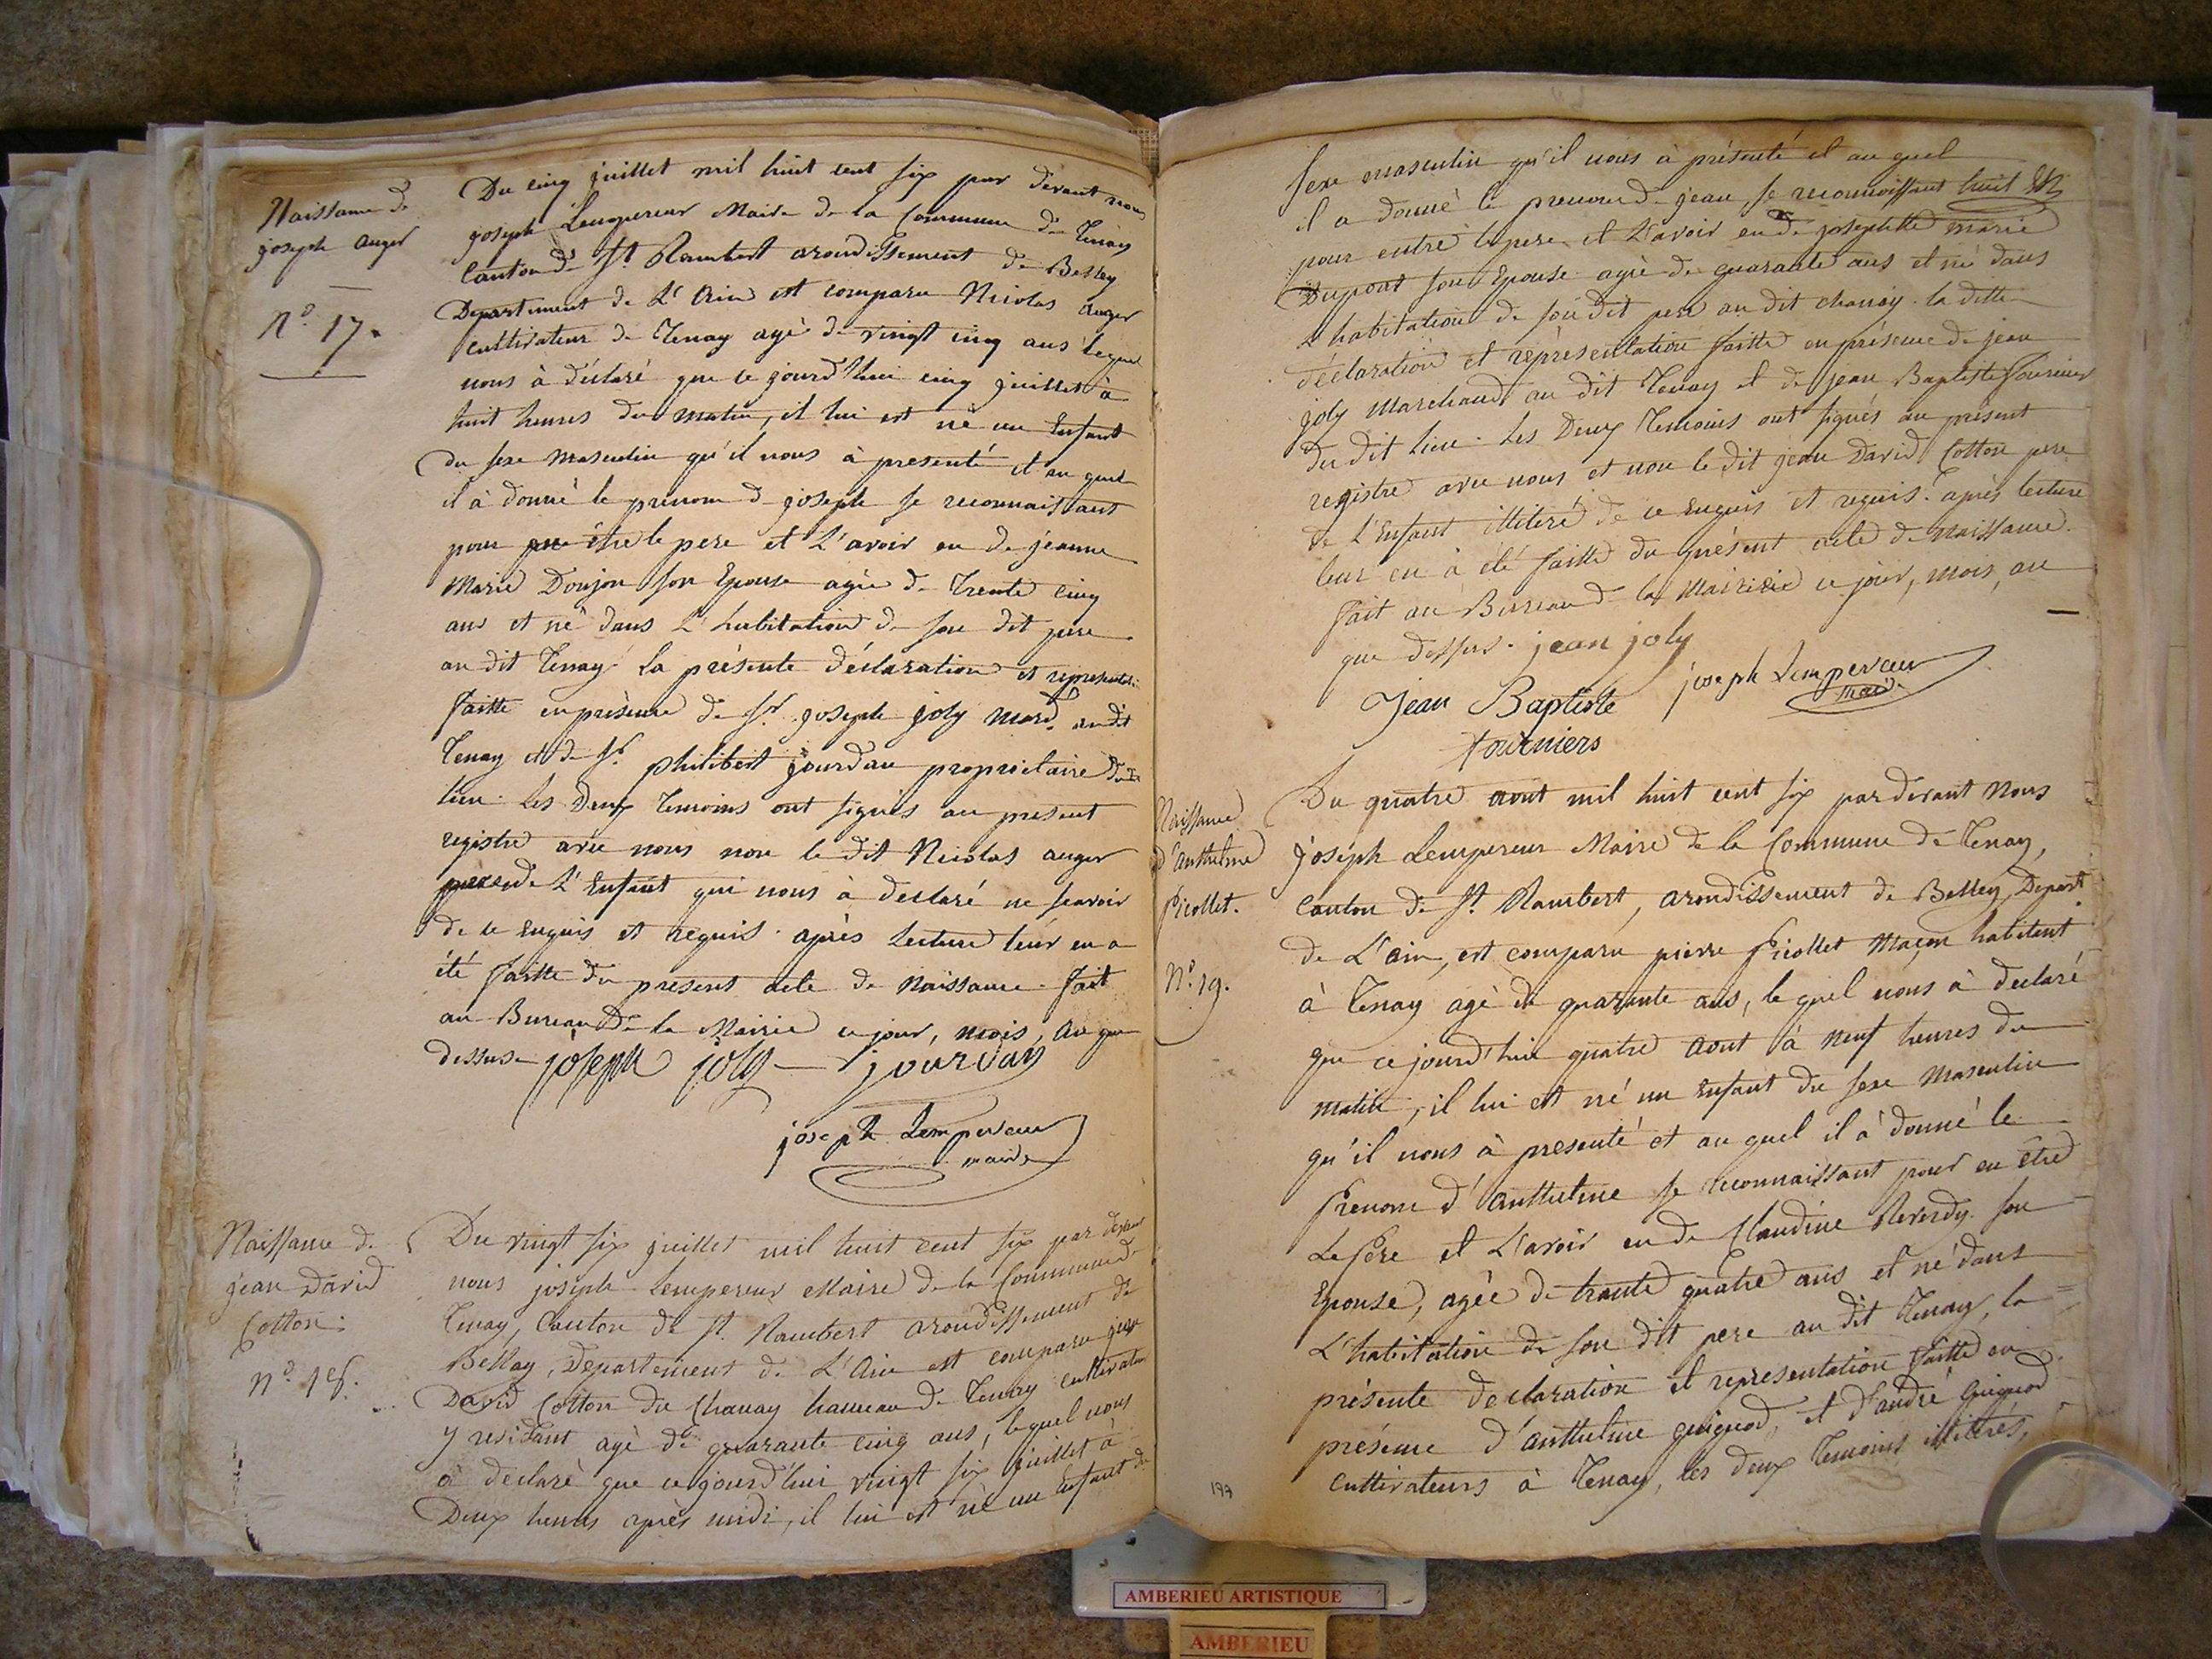 Naissance de
joseph auger
N.o 17.
Du cinq juillet mil huit cent six par devant nous
joseph Lempereur Maire de la Commune de Tenay
Canton de St. Rambert arondissement de Belley
Departement de L'Ain est comparu Nicolas auger
cultivateur de Tenay agé de vingt cinq ans lequel
nous à déclaré que ce jourd'hui cinq juillet à
huit heures du matin, il lui est né un Enfant
du sexe masculin qu'il nous à presenté et au quel
il à donné le prenom de joseph se reconnaissant
pour être le pere et L'avoir eu de jeanne
Marie Donjon son Epouse agée de Trente cinq
ans et né dans L'habitation de son dit pere
au dit Tenay La présente déclaration et
faitte en présence de Sr. joseph joly Mard. au dit
Tenay et de Sr. philibert jourdan proprietaire du
lieu. Les Deux Temoins ont signés au present
registre avec nous non le dit Nicolas auger
pere de L'Enfant qui nous à declaré ne scavoir
de ce Enquis et requis. après Lecture leur en a
été faitte du present acte de Naissance. fait
au Bureau de la Mairie ce jour, mois, an que
dessus joseph joly jourdan
joseph Lempereur
maire
Naissance de
jean David
Cotton.
n.o 18.
Du vingt six juillet mil huit cent six par devant
nous joseph Lempereur Maire de la Commune de
Tenay, Canton de St. Rambert arondissement de
Bellay, Departement de L'Ain est comparu jean
David Cotton du Chanay hameau de Tenay cultivateur
y residant agé de quarante cinq ans, lequel nous
à déclaré que ce jourd'hui vingt six juillet à
Deux heures après midi, il lui est né un Enfant de
sexe masculin qu'il nous à présenté et au quel
il a donné le prenom de jean, se reconnoissant
pour entre le pere et L'avoir eu de josephtte marie
Dupont son Epouse agée de quarante ans et né dans
L'habitation de son dit pere au dit chanay. la ditte
déclaration et représentation faitte en présence de jean
joly Marchand au dit Tenay et de jean Baptiste fournier
du dit Lieu. Les Deux Temoins ont signés au présent
registre avec nous et non le dit jean David Cotton pere
de L'Enfant illiteré de ce Enquis et requis. après lecture
leur en à été faitte du présent acte de Naissance.
fait au Bureau de la Mairie ce jour, mois, an
que dessus. jean joly
joseph Lempereur
maire
Jean Baptiste
fourniers
Naissance
d'anthelme
Picollet.
N.o 19.
Du quatre aout mil huit cent six pardevant Nous
joseph Lempereur Maire de la Commune de Tenay,
Canton de St. Rambert, arondissement de Belley, Depart.
de L'ain, est comparu pierre Picollet Maçon habitant
à Tenay agé de quarante ans, le quel nous à declaré
que ce jourd'hui quatre aout à neuf heures du
matin, il lui est né un Enfant du sexe Masculin
qu'il nous à presenté et au quel il à donné le
Prenom d'anthelme se reconnaissant pour en être
Le Père et L'avoir eu de Claudine Reverdy son
Epouse, agée de trante quatre ans et né dans
L'habitation de son dit pere au dit Tenay, la
présente declaration et representation faitte en
présence d'anthelme guignod, et d'andré Guignod
Cultivateurs à Tenay, les deux Temoins illitérés,
AMBERIEU ARTISTIQUE
AMBERIEU